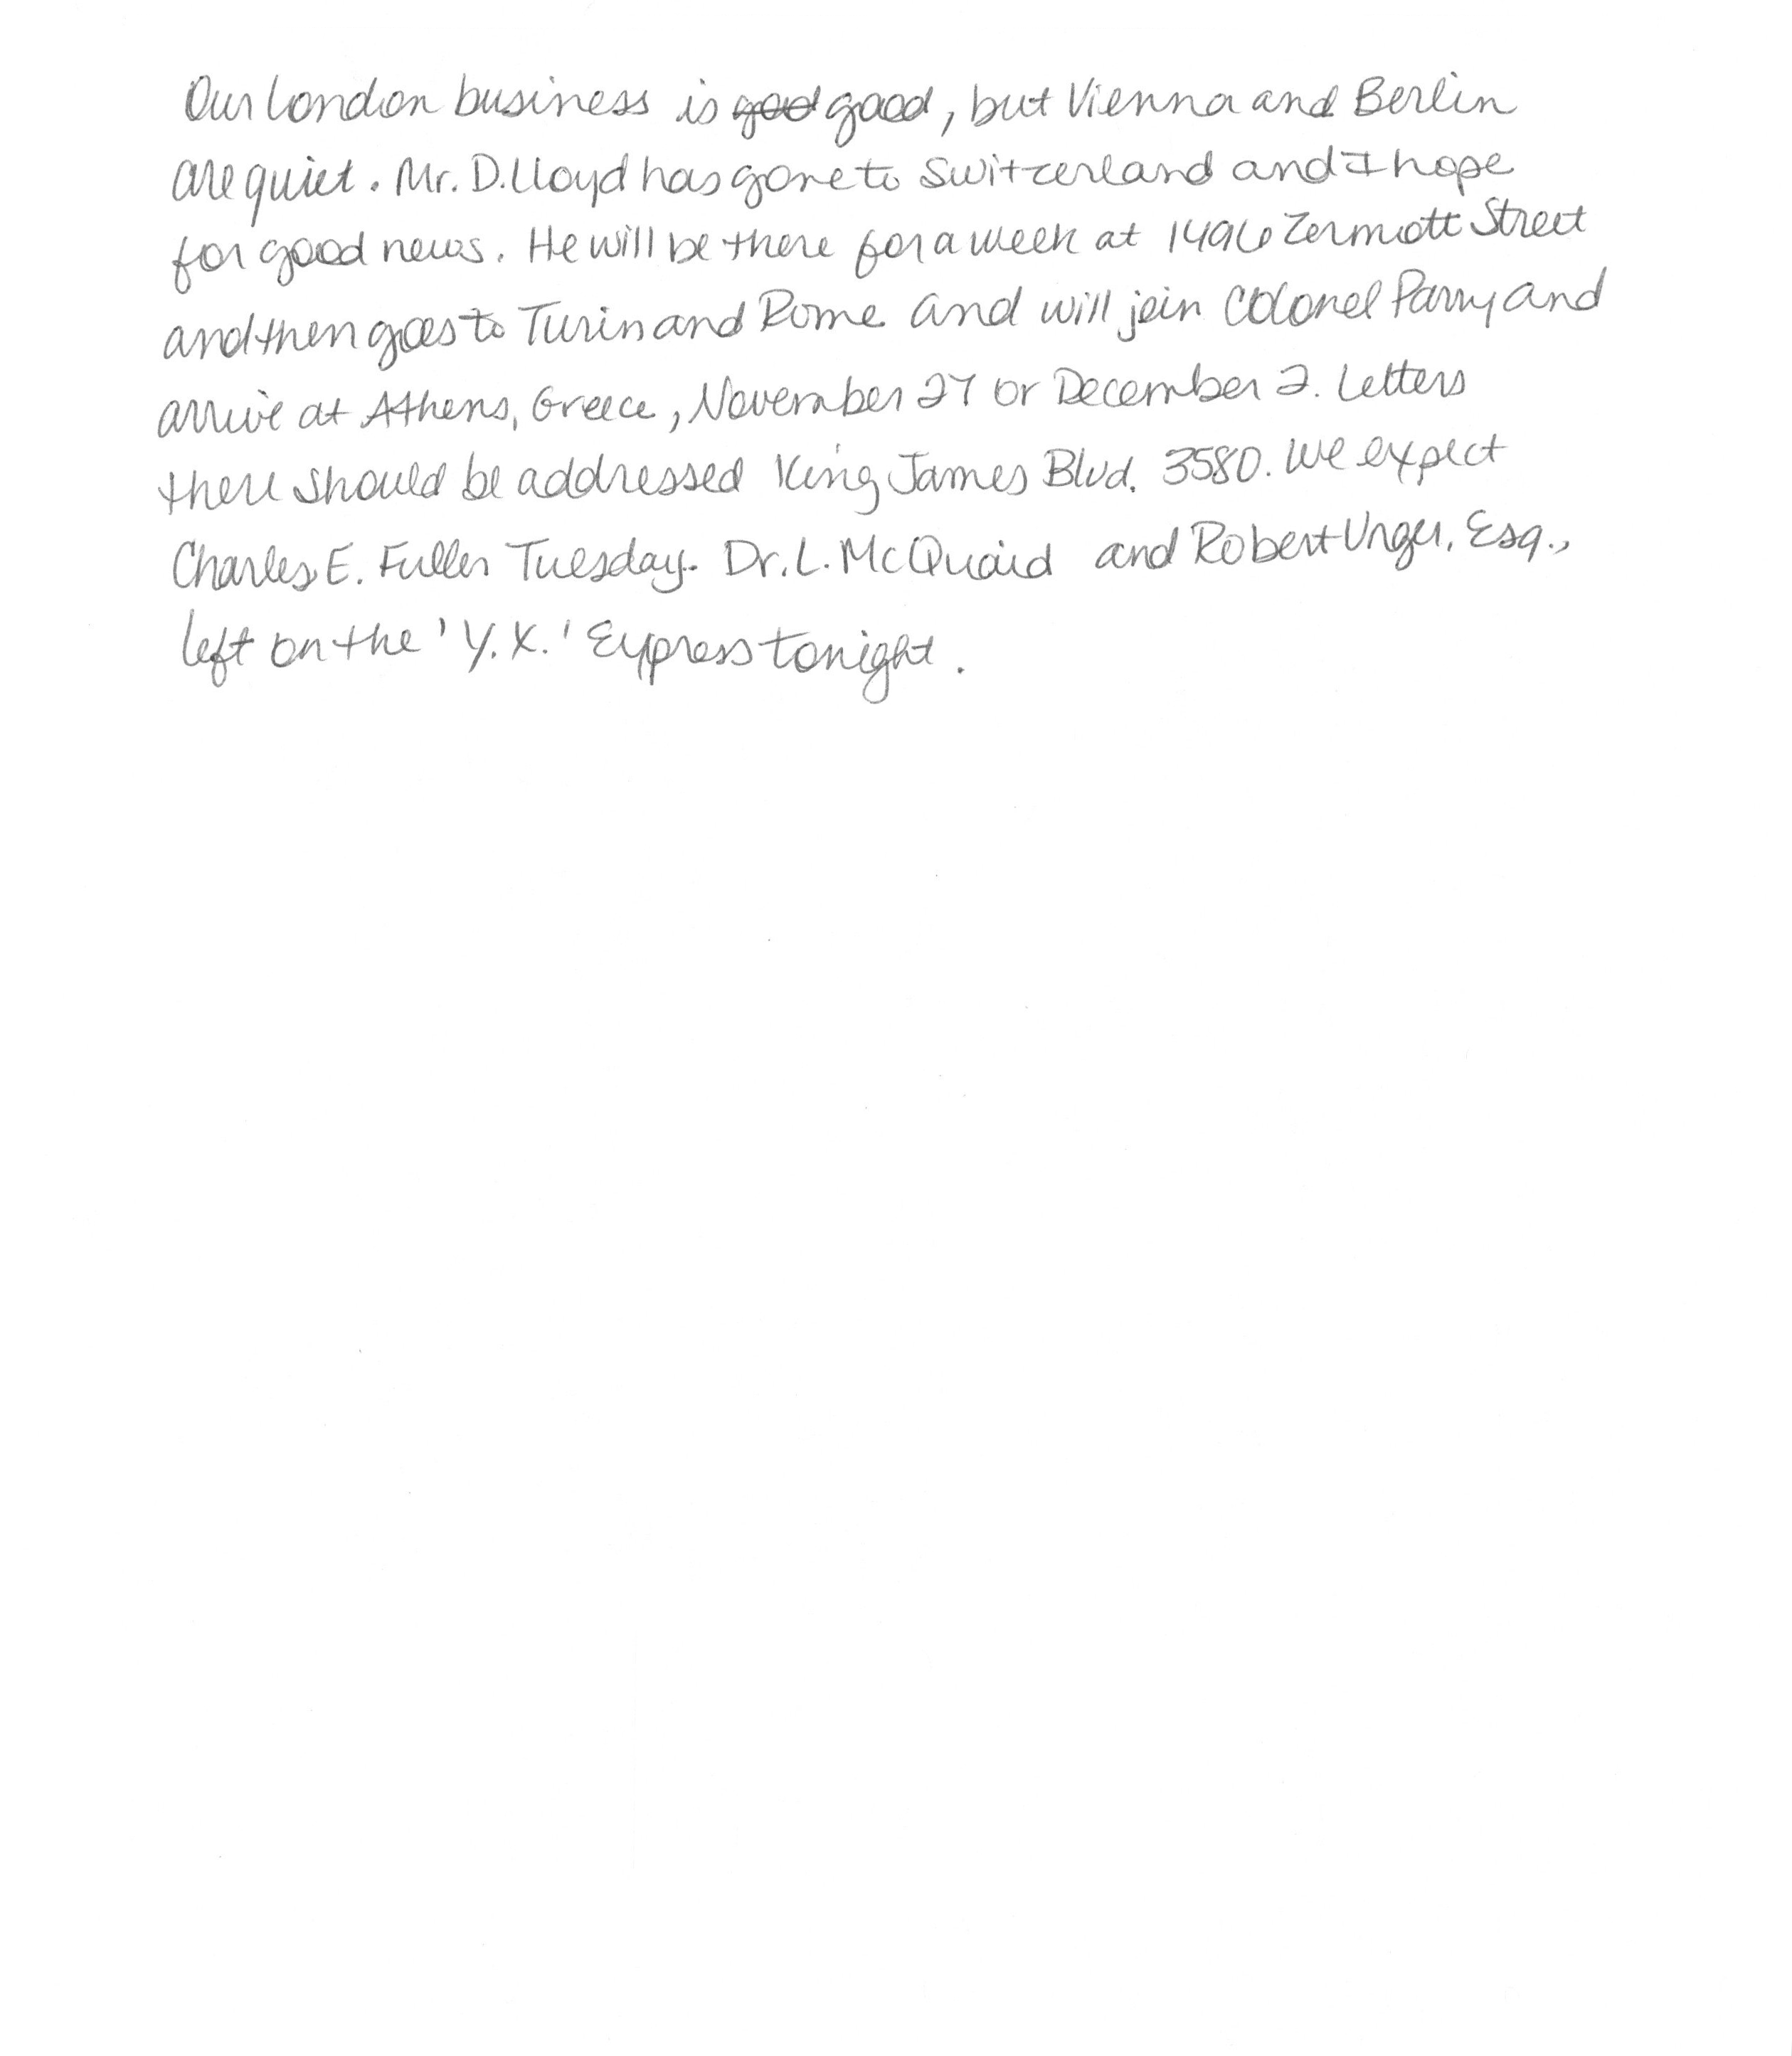 Our London business is good good, but Vienna and Berlin
are quiet. Mr. D. Lloyd has gone to Switzerland and I hope
for good news. He will be there for a week at 1496 Zermott Street
and then goes to Turin and Rome and will join Colonel Parry and
arrive at Athens, Greece, November 27 or December 2. Letters
there should be addressed King James Blvd. 3580. We expect
Charles E. Fuller Tuesday. Dr. L. McQuaid and Robert Unger, Esq.,
left on the 'Y.X.' Express tonight.